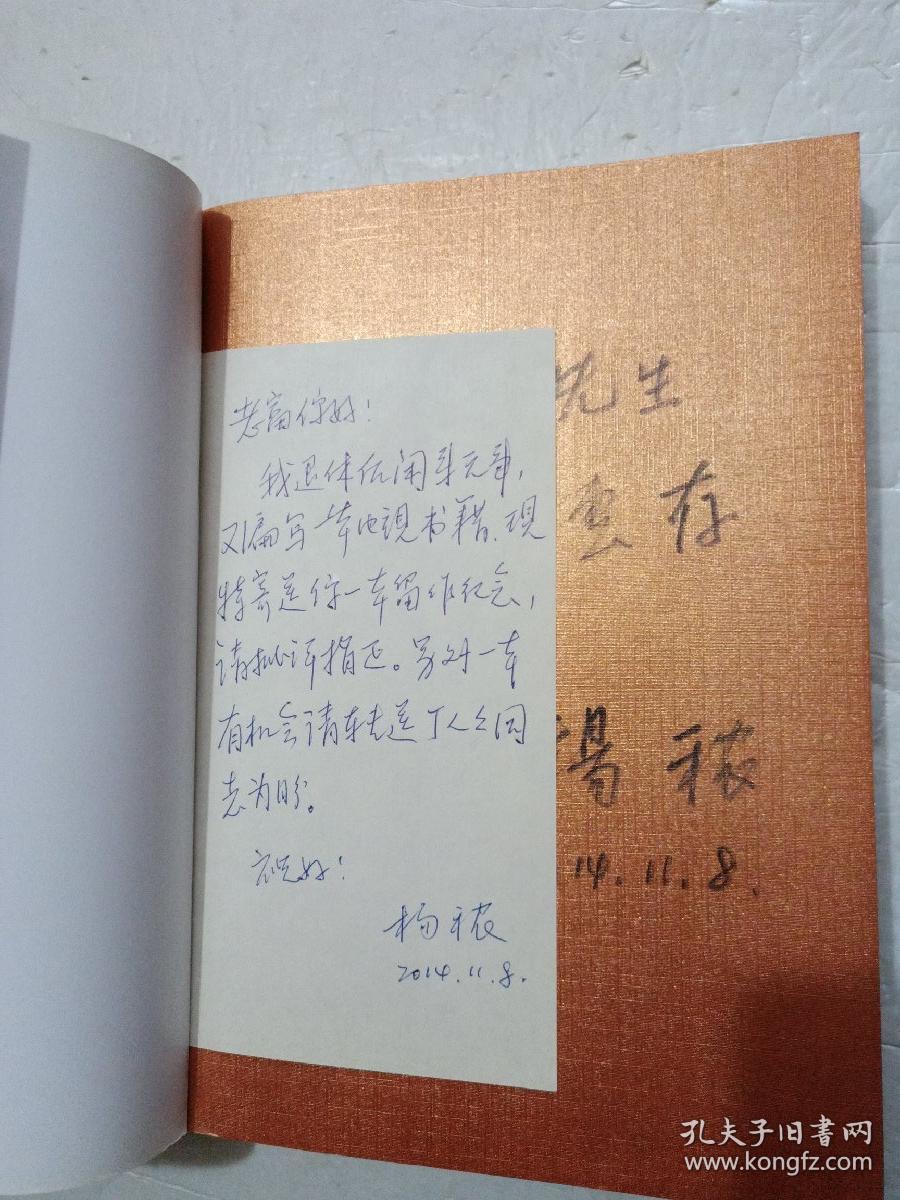 老富你好！
我退休后闲来无事，
又编写一本电视书籍，现
特寄送你一本留作纪念，
请批评指正。另外一本
有机会请转送丁人人同
志为盼。
祝好！
杨秾
2014.11.8.
先生
惠存
楊秾
14.11.8.
孔夫子旧书网
www.kongfz.com